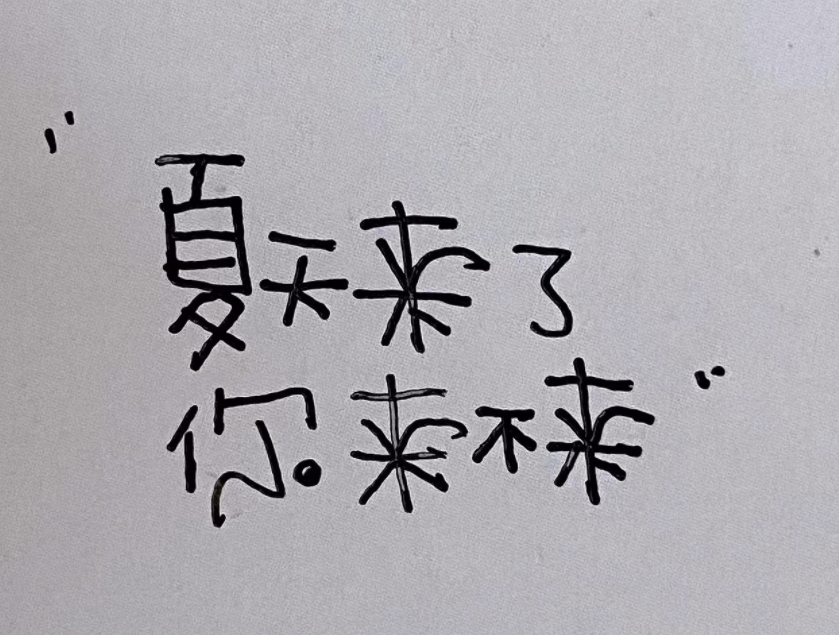 “夏天来了
你来不来”